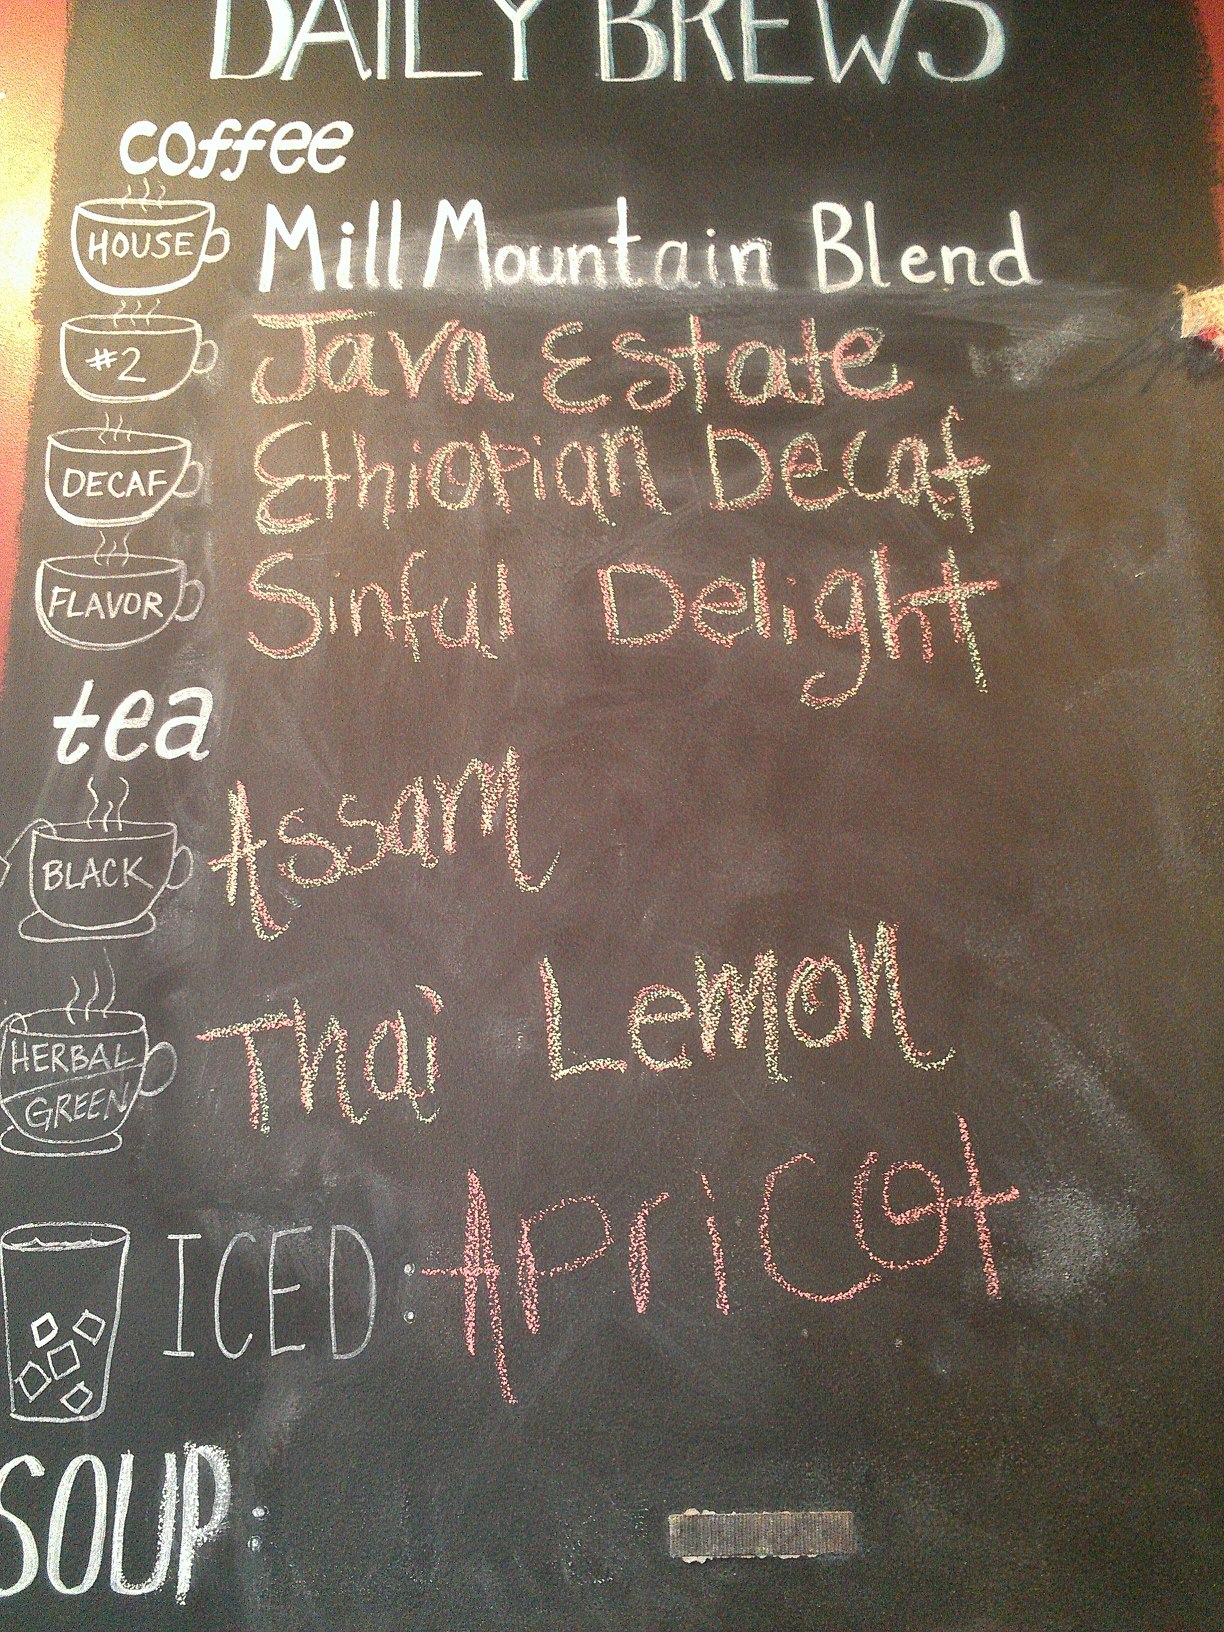 DAILY BREWS
coffee
HOUSE Mill Mountain Blend
#2 Java Estate
DECAF Ethiopian Decaf
FLAVOR Sinful Delight
tea
BLACK Assam
HERBAL
GREEN
Thai Lemon
ICED: Apricot
SOUP: